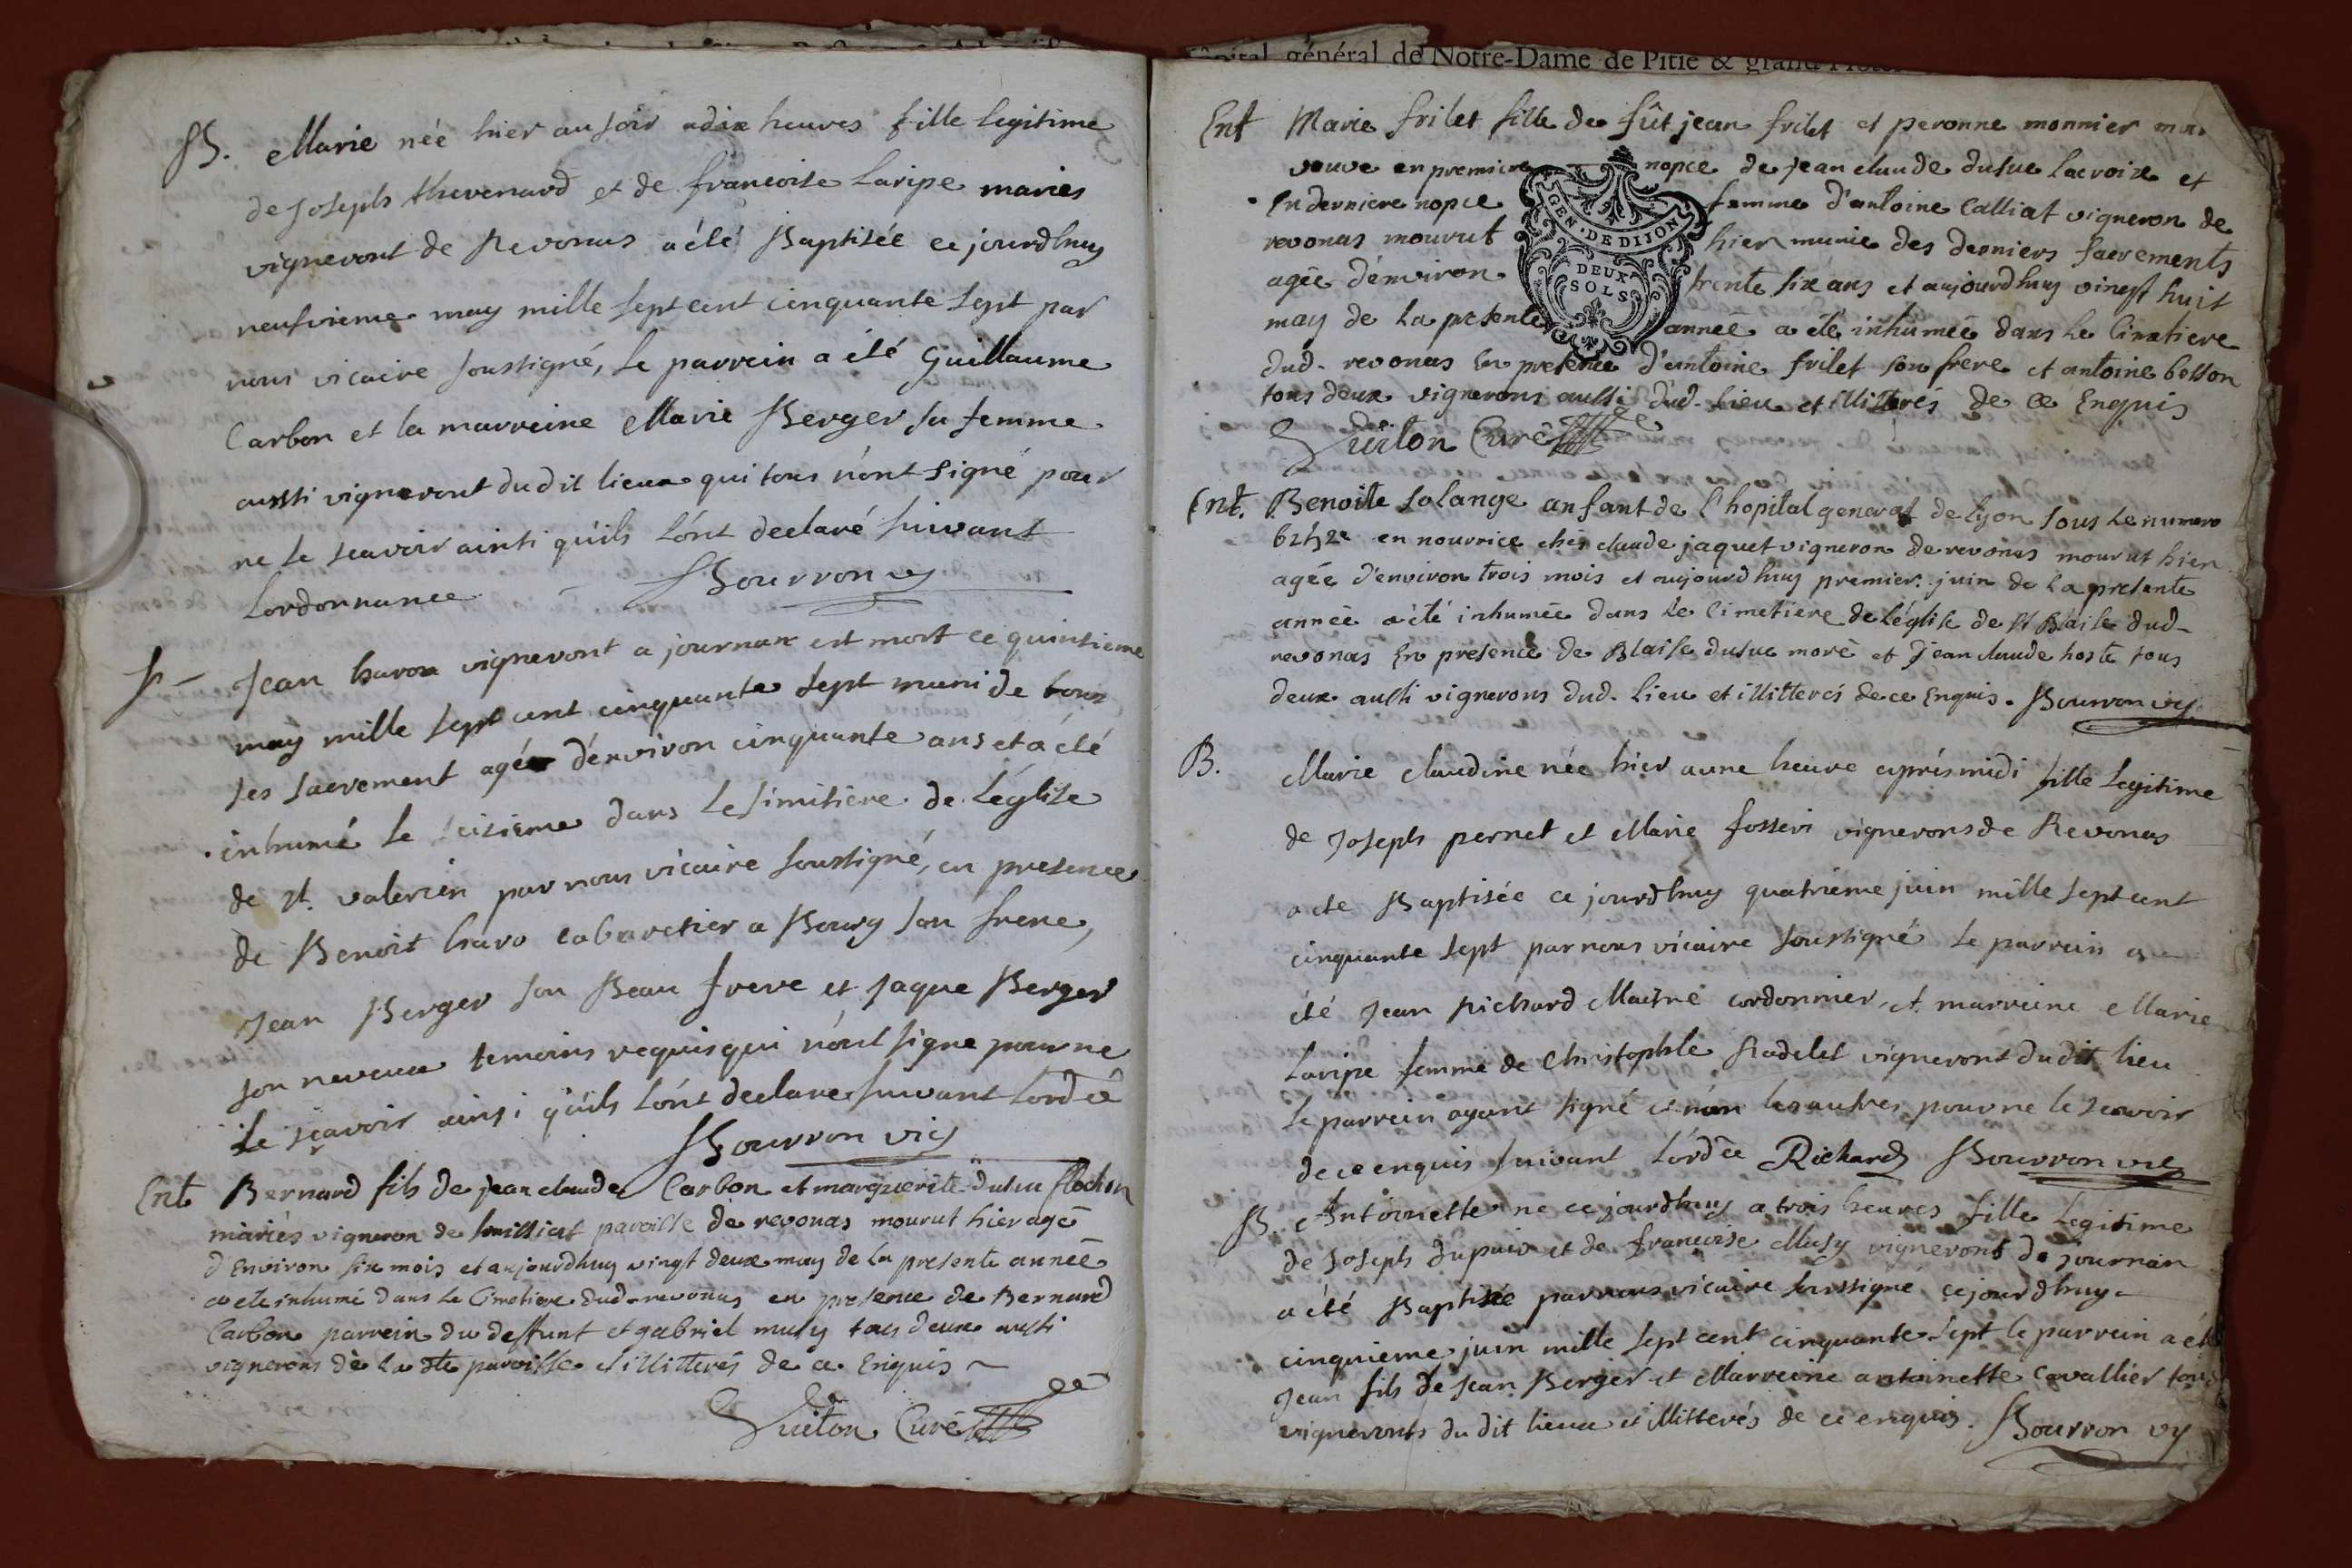 B. Marie née hier au soir a dix heures fille legitime
de Joseph thevenard et de francoise Laripe maries
vigneront de Revonas a été Baptisée ce jourdhuy
neufvieme may mille sept cent cinquante sept par
nous vicaire soussigné, le parrein a été Guillaume
Carbon et la marreine Marie Berger sa femme
aussi vigneront du dit lieux qui tous n'ont signé pour
ne le scavoir ainsi qu'ils l'ónt declaré suivant
Lordonnance Bourron vy
Jean vigneront a journax est mort ce quinsieme
may mille sept cent cinquante sept muni de tous
ses sacrement agée d'environ cinquante ans et a été
inhumé le seizieme dans le simitiere de L'église
de St. valerien par nous vicaire soussigné, en presence
de Benoit cabaretier a Bourg son frere,
Jean Berger son Beau frere et Jaque Berger
son neveux temoins requis qui n'ont signe pour ne
le sçavoir ainsi qu'ils l'ónt declare suivant Lordce
Bourron vicy
Ent Bernard fils de jean claude Carbon et marguerite dusuc flochon
mariés vigneron de paroisse de revonas mourut hier agé
d'Environ six mois et aujourdhuy vingt deux may de la presente année
a ete inhumé dans le Cimetiere dud. revonas en presence de Bernard
Carbon parrein du deffunt et gabriel musy tous deux aussi
vignerons de la dte paroisse et illitterés de ce Enquis
Guiton Curé
général de Notre-Dame de Pitié & grand
Ent Marie frilet fille de fût jean frilet et peronne monnier
veuve en premiere nopce de jean claude dusuc lacroix et
En derniere nopce femme d'antoine Calliat vigneron de
revonas mourut hier munie des derniers sacrements
agée d'environ trente six ans et aujourdhuy vingt huit
may de la presente année a été inhumée dans le Cimetiere
dud. revonas En presence d'antoine frilet son frere et antoine besson
tous deux vignerons aussi dud. lieu et illitterés de ce Enquis
GEN. DE DIJON
DEUX
SOLS
Guiton Curé
Ent. Benoite Solange anfant de l'hopital general de lyon sous le numero
en nourrice chés claude jaquet vigneron de revonas mourut hier
agée d'environ trois mois et aujourdhuy premier juin de la presente
année a été inhumée dans le Cimetiere de l'église de St Blaise dud
revonas En presence de Blaise dusuc moré et Jean claude hoste tous
deux aussi vignerons dud. lieu et illitterés de ce Enquis. Bourron vy
B. Marie claudine née hier a une heure aprés midi fille legitime
de Joseph pernet et Marie vignerons de Revonas
a ete Baptisée ce jourdhuy quatrieme juin mille sept cent
cinquante sept par nous vicaire soussigné le parrein a
été Jean Richard Maitre cordonnier, et marreine Marie
Laripe femme de Christophle vigneront du dit lieu
le parrein ayant signé et non les autres pour ne le scavoir
de ce enquis suivant L'ordce Richard Bourron vic
B. Antoinette né ce jourdhuy a trois heures fille legitime
de Joseph dupuis et de françoise Musy vigneront de journan
a été Baptisée par nous vicaire soussigné ce jourdhuy
cinquieme juin mille sept cent cinquante sept le parrein a été
Jean fils de Jean Berger et Marreine antoinette Cavallier tous
vigneronts du dit lieux et illitterés de ce enquis. Bourron vy